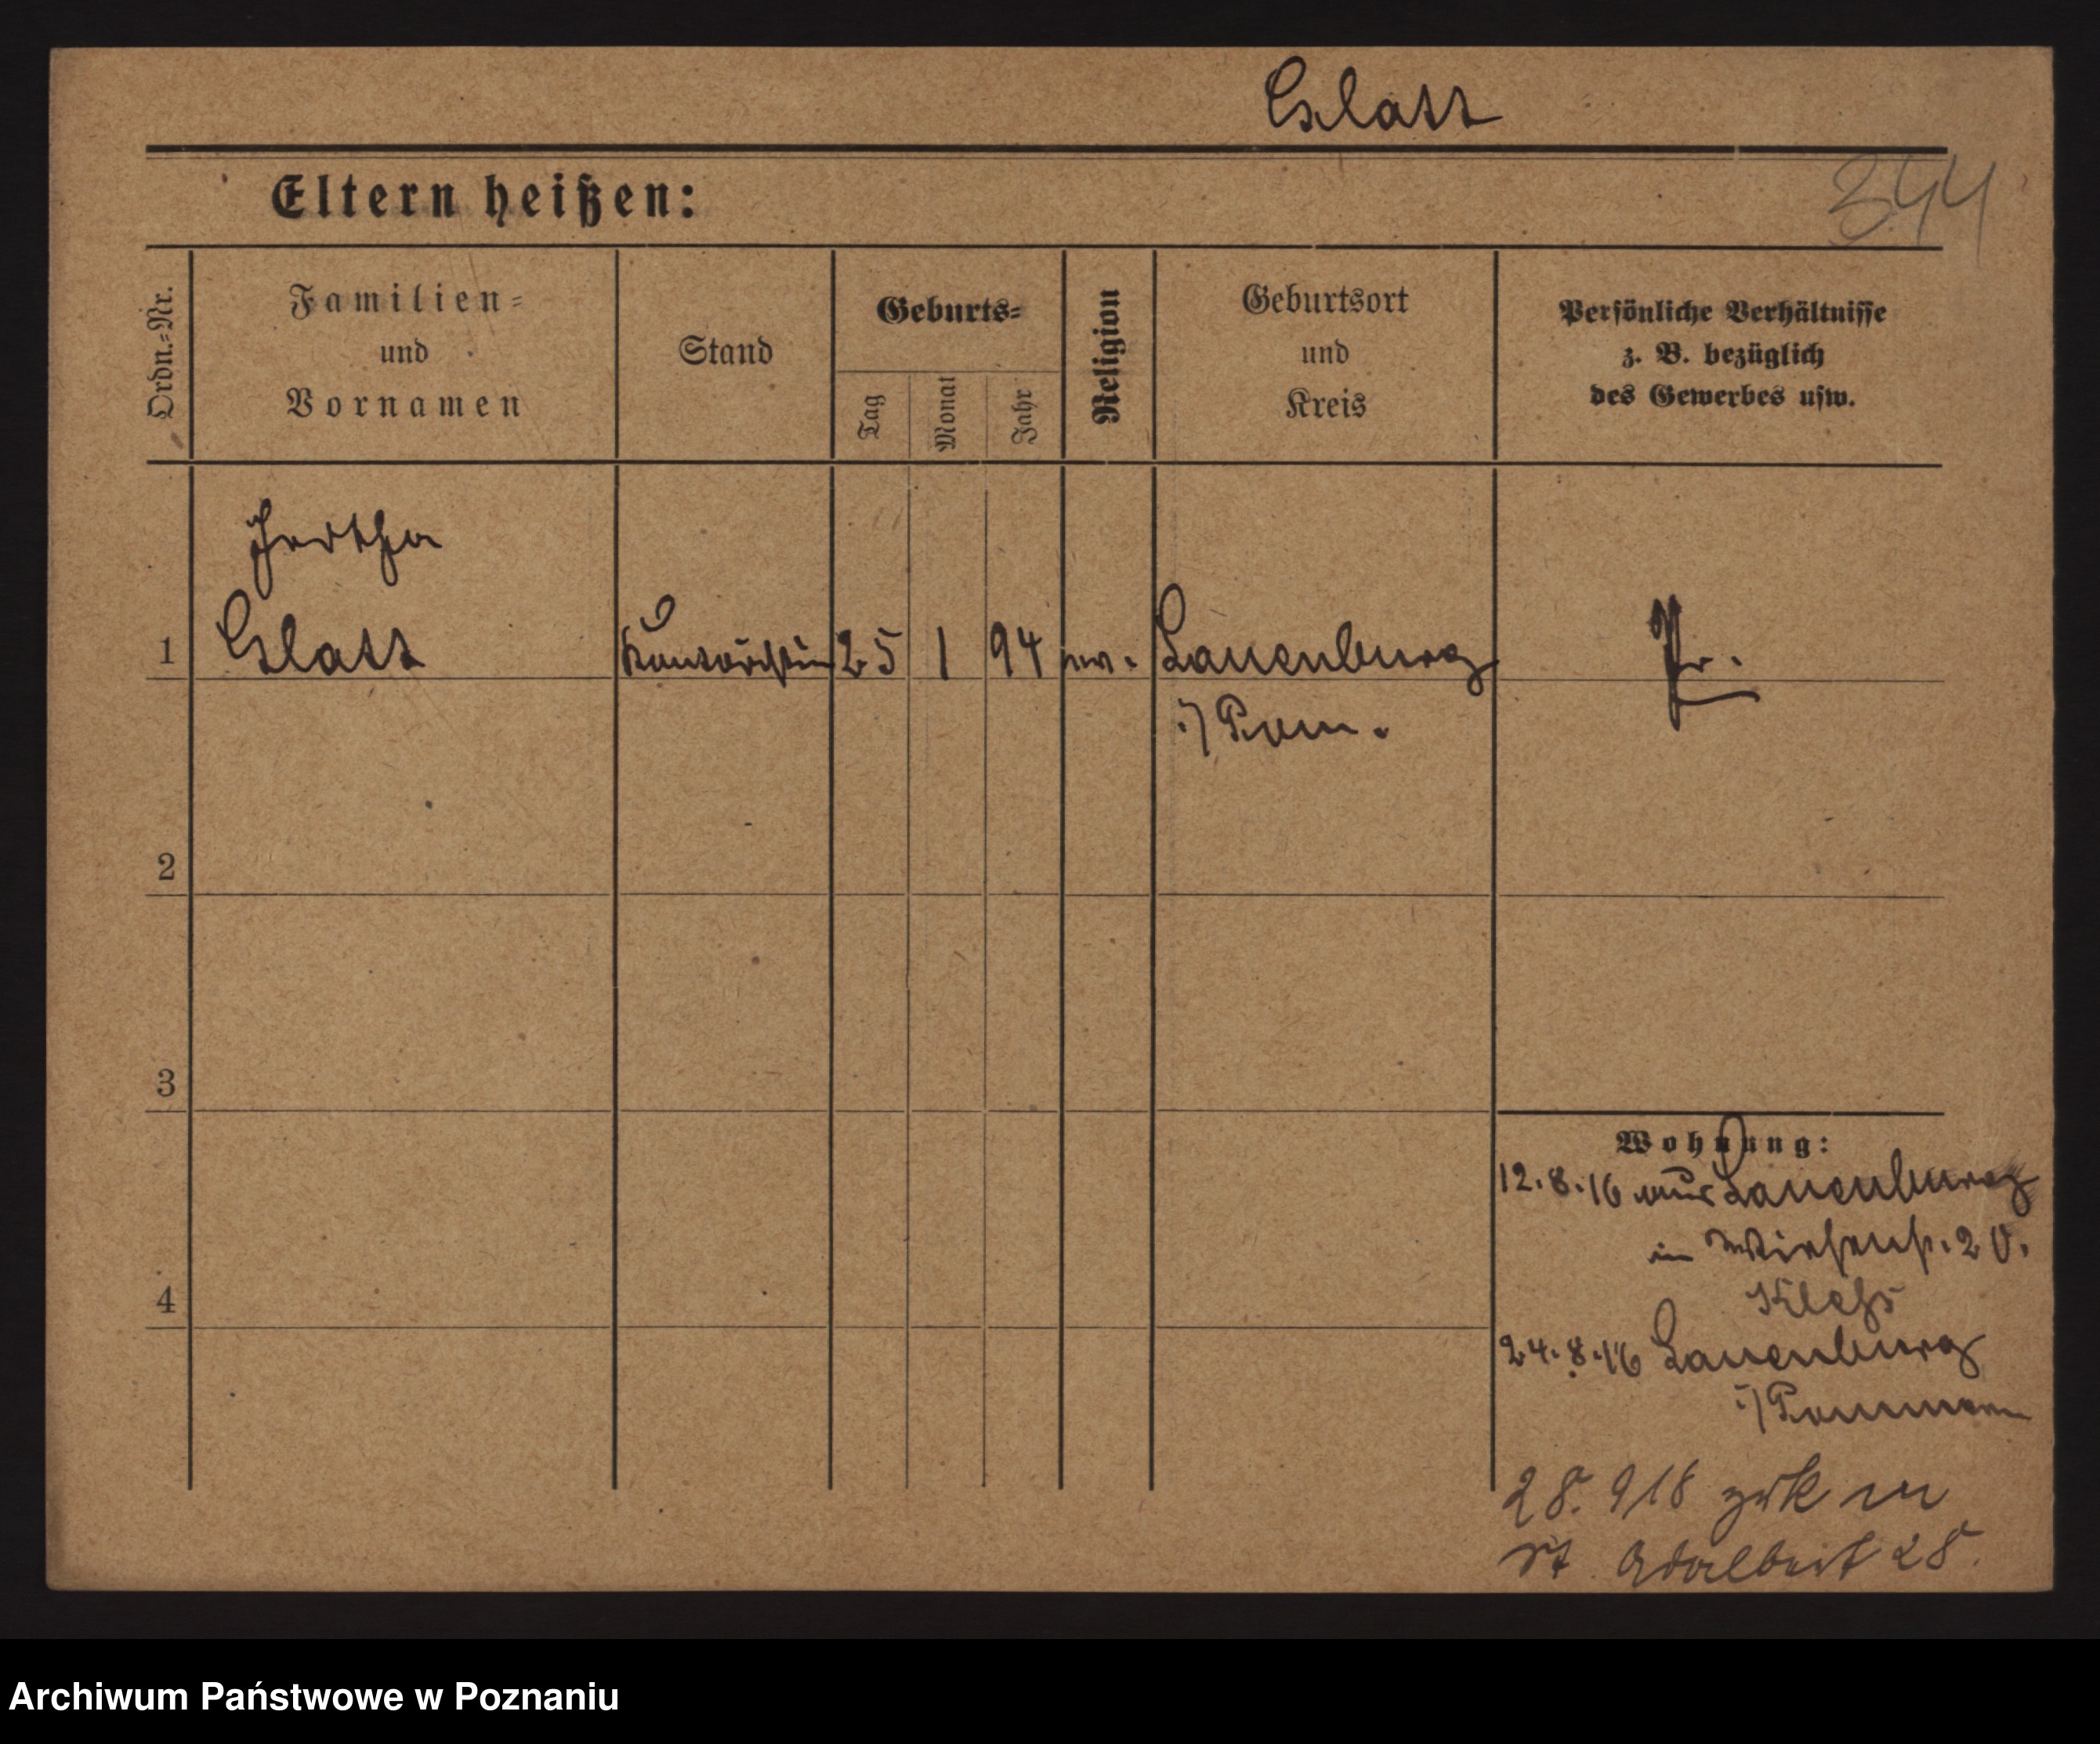 Glatz
344
Eltern heißen:
Ordn.-Nr.
Familien-
und
Vornamen
Stand
Geburts-
Tag
Monat
Jahr
Religion
Geburtsort
und
Kreis
Persönliche Verhältnisse
z. B. bezüglich
des Gewerbes usw.
Hertha
1 Glatz Kontoristin 25 1 94 ev. Lauenburg Pr.
i/ Pom.
2
3
4
Wohnung:
12.8.16 aus Lauenburg
in 20.
24.8.16 Lauenburg
i/ Pommern
28. 9 18 zrk in
St. Adalbert 28.
Archiwum Państwowe w Poznaniu